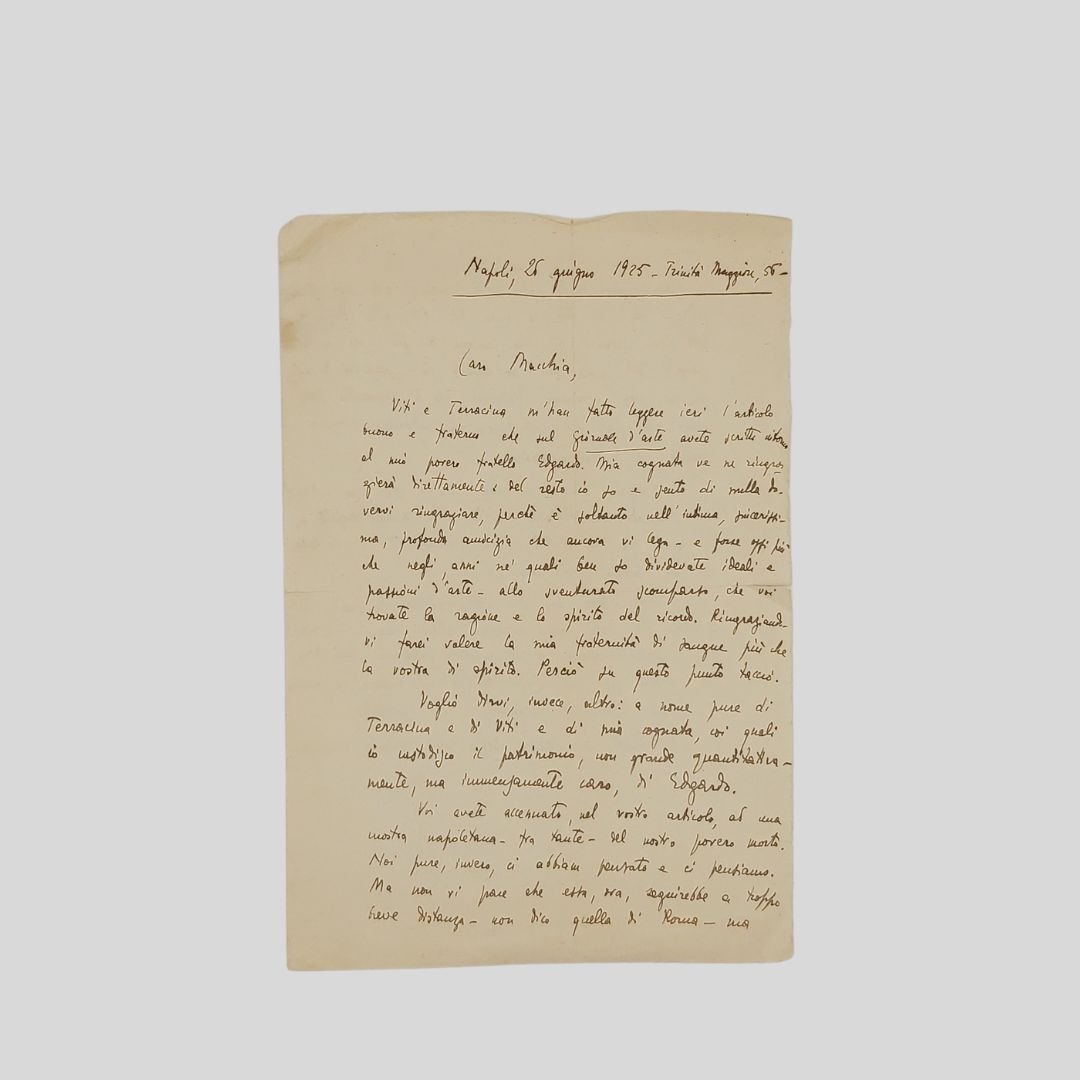 Napoli, 26 giugno 1925 - Trinità Maggiore, 56 -
Caro Macchia,
Viti e Terracina m'han fatto leggere ieri l'articolo
buono e fraterno che sul Giornale d'arte avete scritto intorno
al mio povero fratello Edgardo. Mia cognata ve ne ringra-
zierà direttamente: del resto io so e sento di nulla do-
vervi ringraziare, perchè è soltanto nell'intima, sincerissi-
ma, profonda amicizia che ancora vi lega - e forse oggi più
che negli anni ne' quali ben so dividevate ideali e
passioni d'arte - allo sventurato scomparso, che voi
trovate la ragione e lo spirito del ricordo. Ringraziando-
vi farei valere la mia fraternità di sangue più che
la vostra di spirito. Perciò su questo punto taccio.
Voglio dirvi, invece, altro: a nome pure di
Terracina e di Viti e di mia cognata, coi quali
io custodisco il patrimonio, non grande quantitativa-
mente, ma immensamente caro, di Edgardo.
Voi avete accennato, nel vostro articolo, ad una
mostra napoletana - fra tante - del nostro povero morto.
Noi pure, invero, ci abbiam pensato e ci pensiamo.
Ma non vi pare che essa, ora, seguirebbe a troppo
breve distanza - non dico quella di Roma - ma